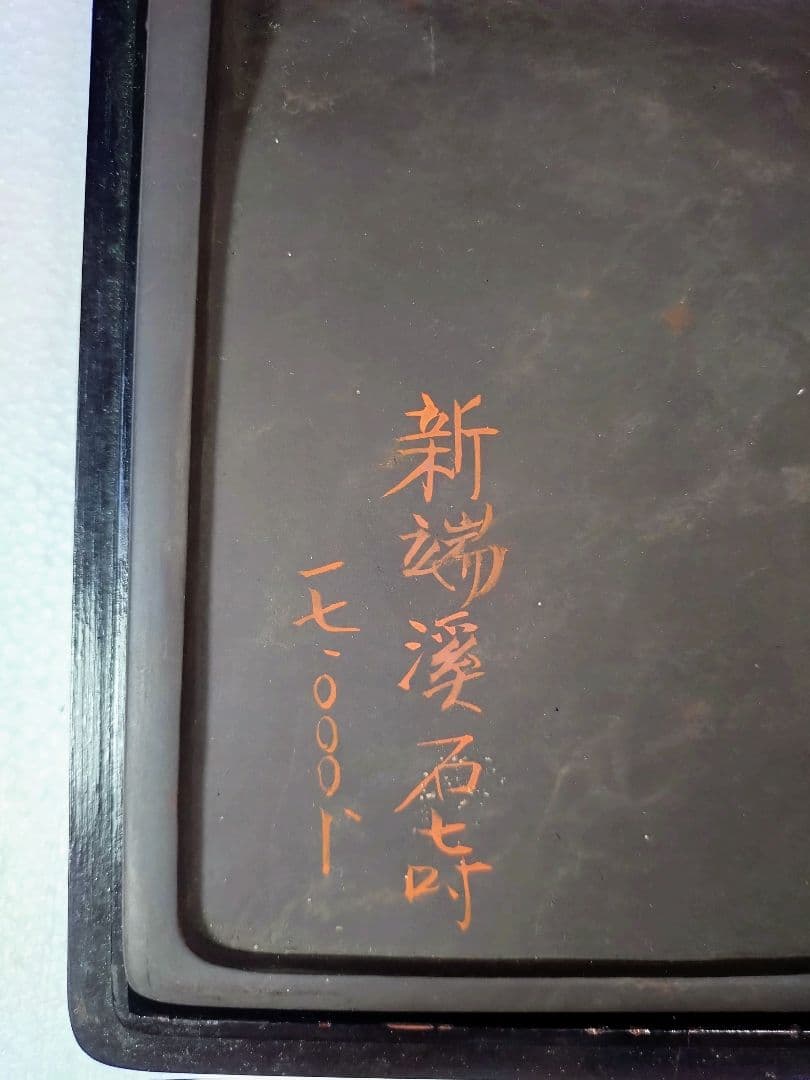 新端溪石七吋
一七、〇〇〇